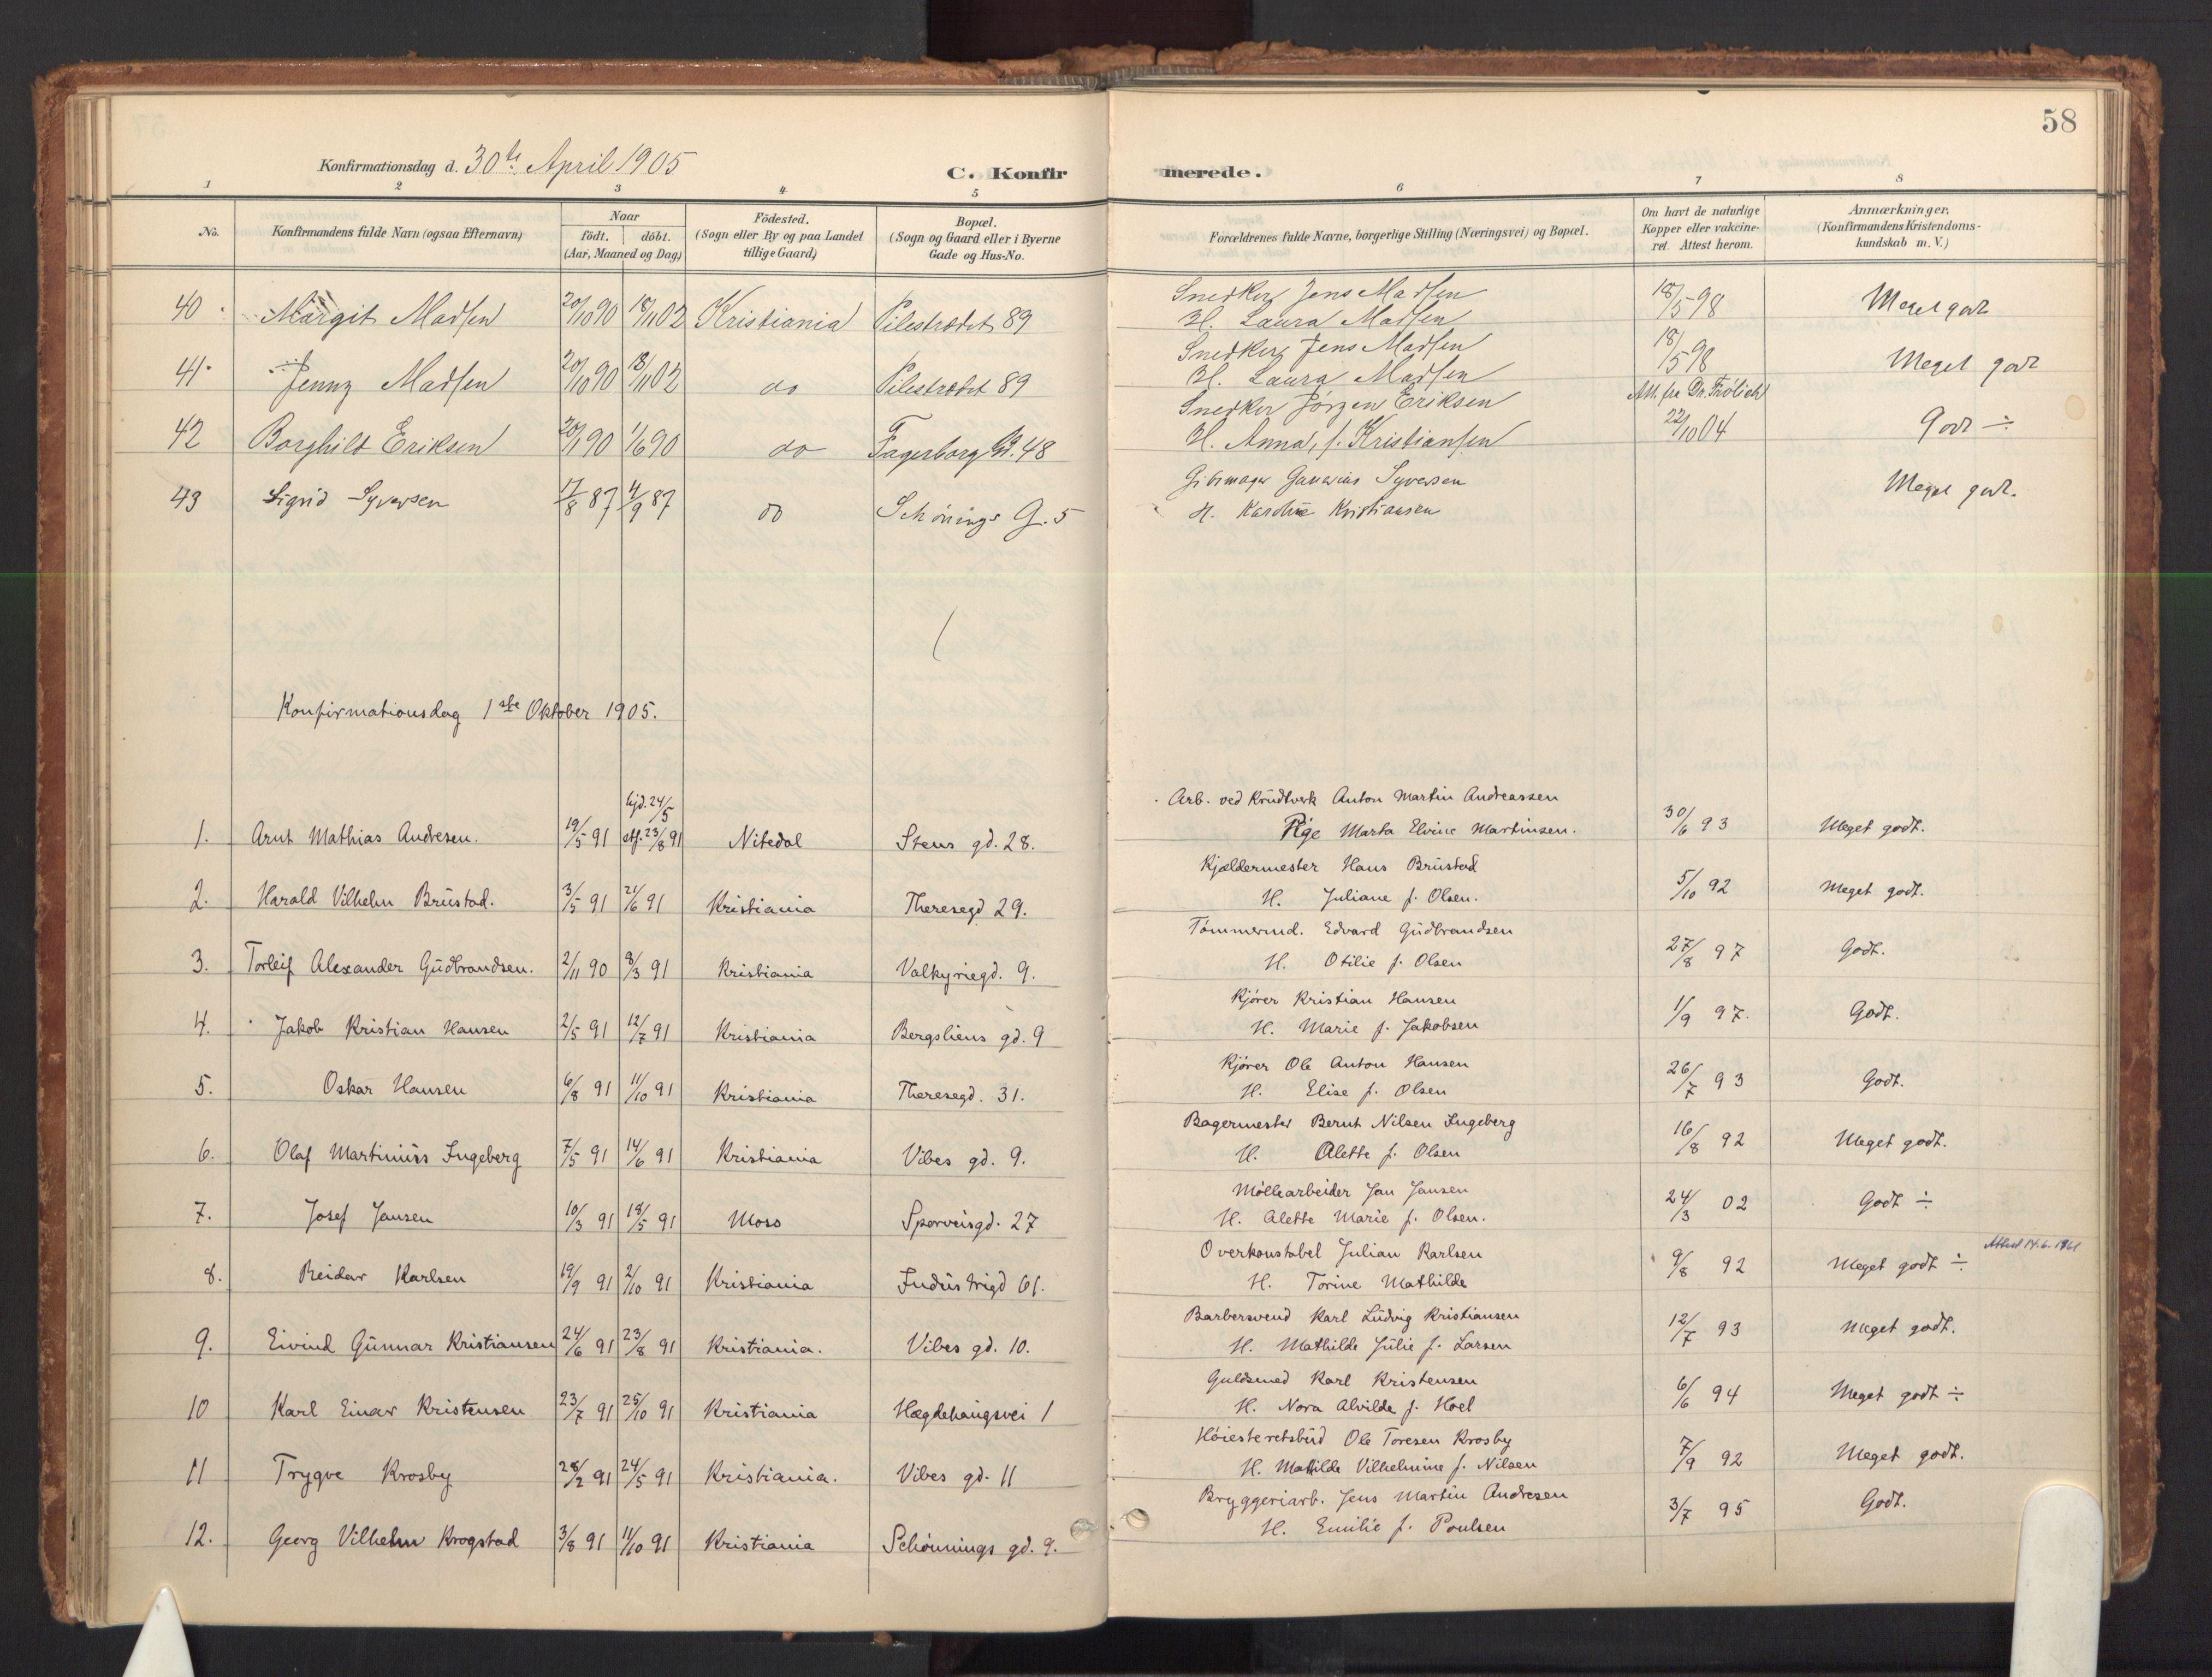 58
Konfirmationsdag d. 30te April 1905
C. Konfirmerede.
1 2 3 4 5 6 7 8
No.
Konfirmandens fulde Navn (ogsaa Efternavn)
Naar
født. døbt.
(Aar, Maaned og Dag)
Födested.
(Sogn eller By og paa Landet
tillige Gaard)
Bopæl.
(Sogn og Gaard eller i Byerne
Gade og Hus-No.
Forældrenes fulde Navne, borgerlige Stilling (Næringsvei) og Bopæl.
Om havt de naturlige
Kopper eller vakcine-
ret. Attest herom.
Anmærkninger.
(Konfirmandens Kristendoms-
kundskab m. V.)
40 Margit Madsen 20/10 90 18/11 02 Kristiania Pilestrædet 89 Snedker Jens Madsen 18/5 98 Meget godt
H. Laura Madsen
41 Jenny Madsen 20/10 90 18/11 02 do Pilestrædet 89 Snedker Jens Madsen 18/5 98 Meget godt
H. Laura Madsen
42 Borghild Eriksen 20/1 90 1/6 90 do Fagerborg Gt. 48 Snedker Jörgen Eriksen Att. fra Dr. Frölich 22/10 04 Godt ÷
H. Anna, f. Kristiansen
43 Sigrid Syversen 17/8 87 4/9 87 do Schönings G. 5 Gibsmager Syversen Meget godt.
H. Karoline Kristiansen
Konfirmationsdag 1ste Oktober 1905.
1. Arnt Mathias Andresen. 19/5 91 hjd. 24/5 stf. 23/8 91 Nitedal Stens gd. 28. Arb. ved Krudtverk Anton Martin Andreassen 30/6 93 Meget godt.
Pige Marta Elvine Martinsen.
2. Harald Vilhelm Brustad. 3/5 91 21/6 91 Kristiania Theresegd 29. Kjældermester Hans Brustad 5/10 92 Meget godt.
H. Juliane f. Olsen.
3. Torleif Alexander Gudbrandsen. 2/11 90 8/3 91 Kristiania Valkyriegd. 9. Tømmermd. Edvard Gudbrandsen 27/8 97 Godt.
H. Otilie f. Olsen
4. Jakob Kristian Hansen 2/5 91 12/7 91 Kristiania Bergsliens gd. 9 Kjører Kristian Hansen 1/9 97. Godt.
H. Marie f. Jakobsen
5. Oskar Hansen 6/8 91 11/10 91 Kristiania Theresegd. 31. Kjører Ole Anton Hansen 26/7 93 Godt.
H. Elise f. Olsen
6. Olaf Martinius Ingeberg 7/5 91 14/6 91 Kristiania Vibes gd. 9. Bagermester Bernt Nilsen Ingeberg 16/8 92 Meget godt.
H. Alette f. Olsen
7. Josef Jansen 10/3 91 18/5 91 Moss Sporveisgd. 27 Møllearbeider Jan Jansen 24/3 02 Godt ÷
H. Alette Marie f. Olsen.
8. Reidar Karlsen 19/9 91 2/10 91 Kristiania Industrigd 61. Overkonstabel Julian Karlsen 9/8 92 Meget godt ÷ Attest 14.6.1961
H. Torine Mathilde
9. Eivind Gunnar Kristiansen 24/6 91 23/8 91 Kristiania. Vibes gd. 10. Barbersvend Karl Ludvig Kristiansen 12/7 93 Meget godt.
H. Mathilde Julie f. Larsen
10 Karl Einar Kristensen 23/7 91 25/10 91 Kristiania Hægdehaugsvei 1 Guldsmed Karl Kristensen 6/6 94 Meget godt ÷
H. Nora Alvilde f. Hoel
11 Trygve Krosby 28/2 91 24/5 91 Kristiania. Vibes gd. 11 Høiesteretsbud Ole Toresen Krosby 7/9 92 Meget godt.
H. Mathilde Vilhelmine f. Nilsen
12. Georg Vilhelm Krogstad 3/8 91 11/10 91 Kristiania Schønnings gd. 9. Bryggeriarb. Jens Martin Andresen 3/7 95 Godt.
H. Emilie f. Poulsen